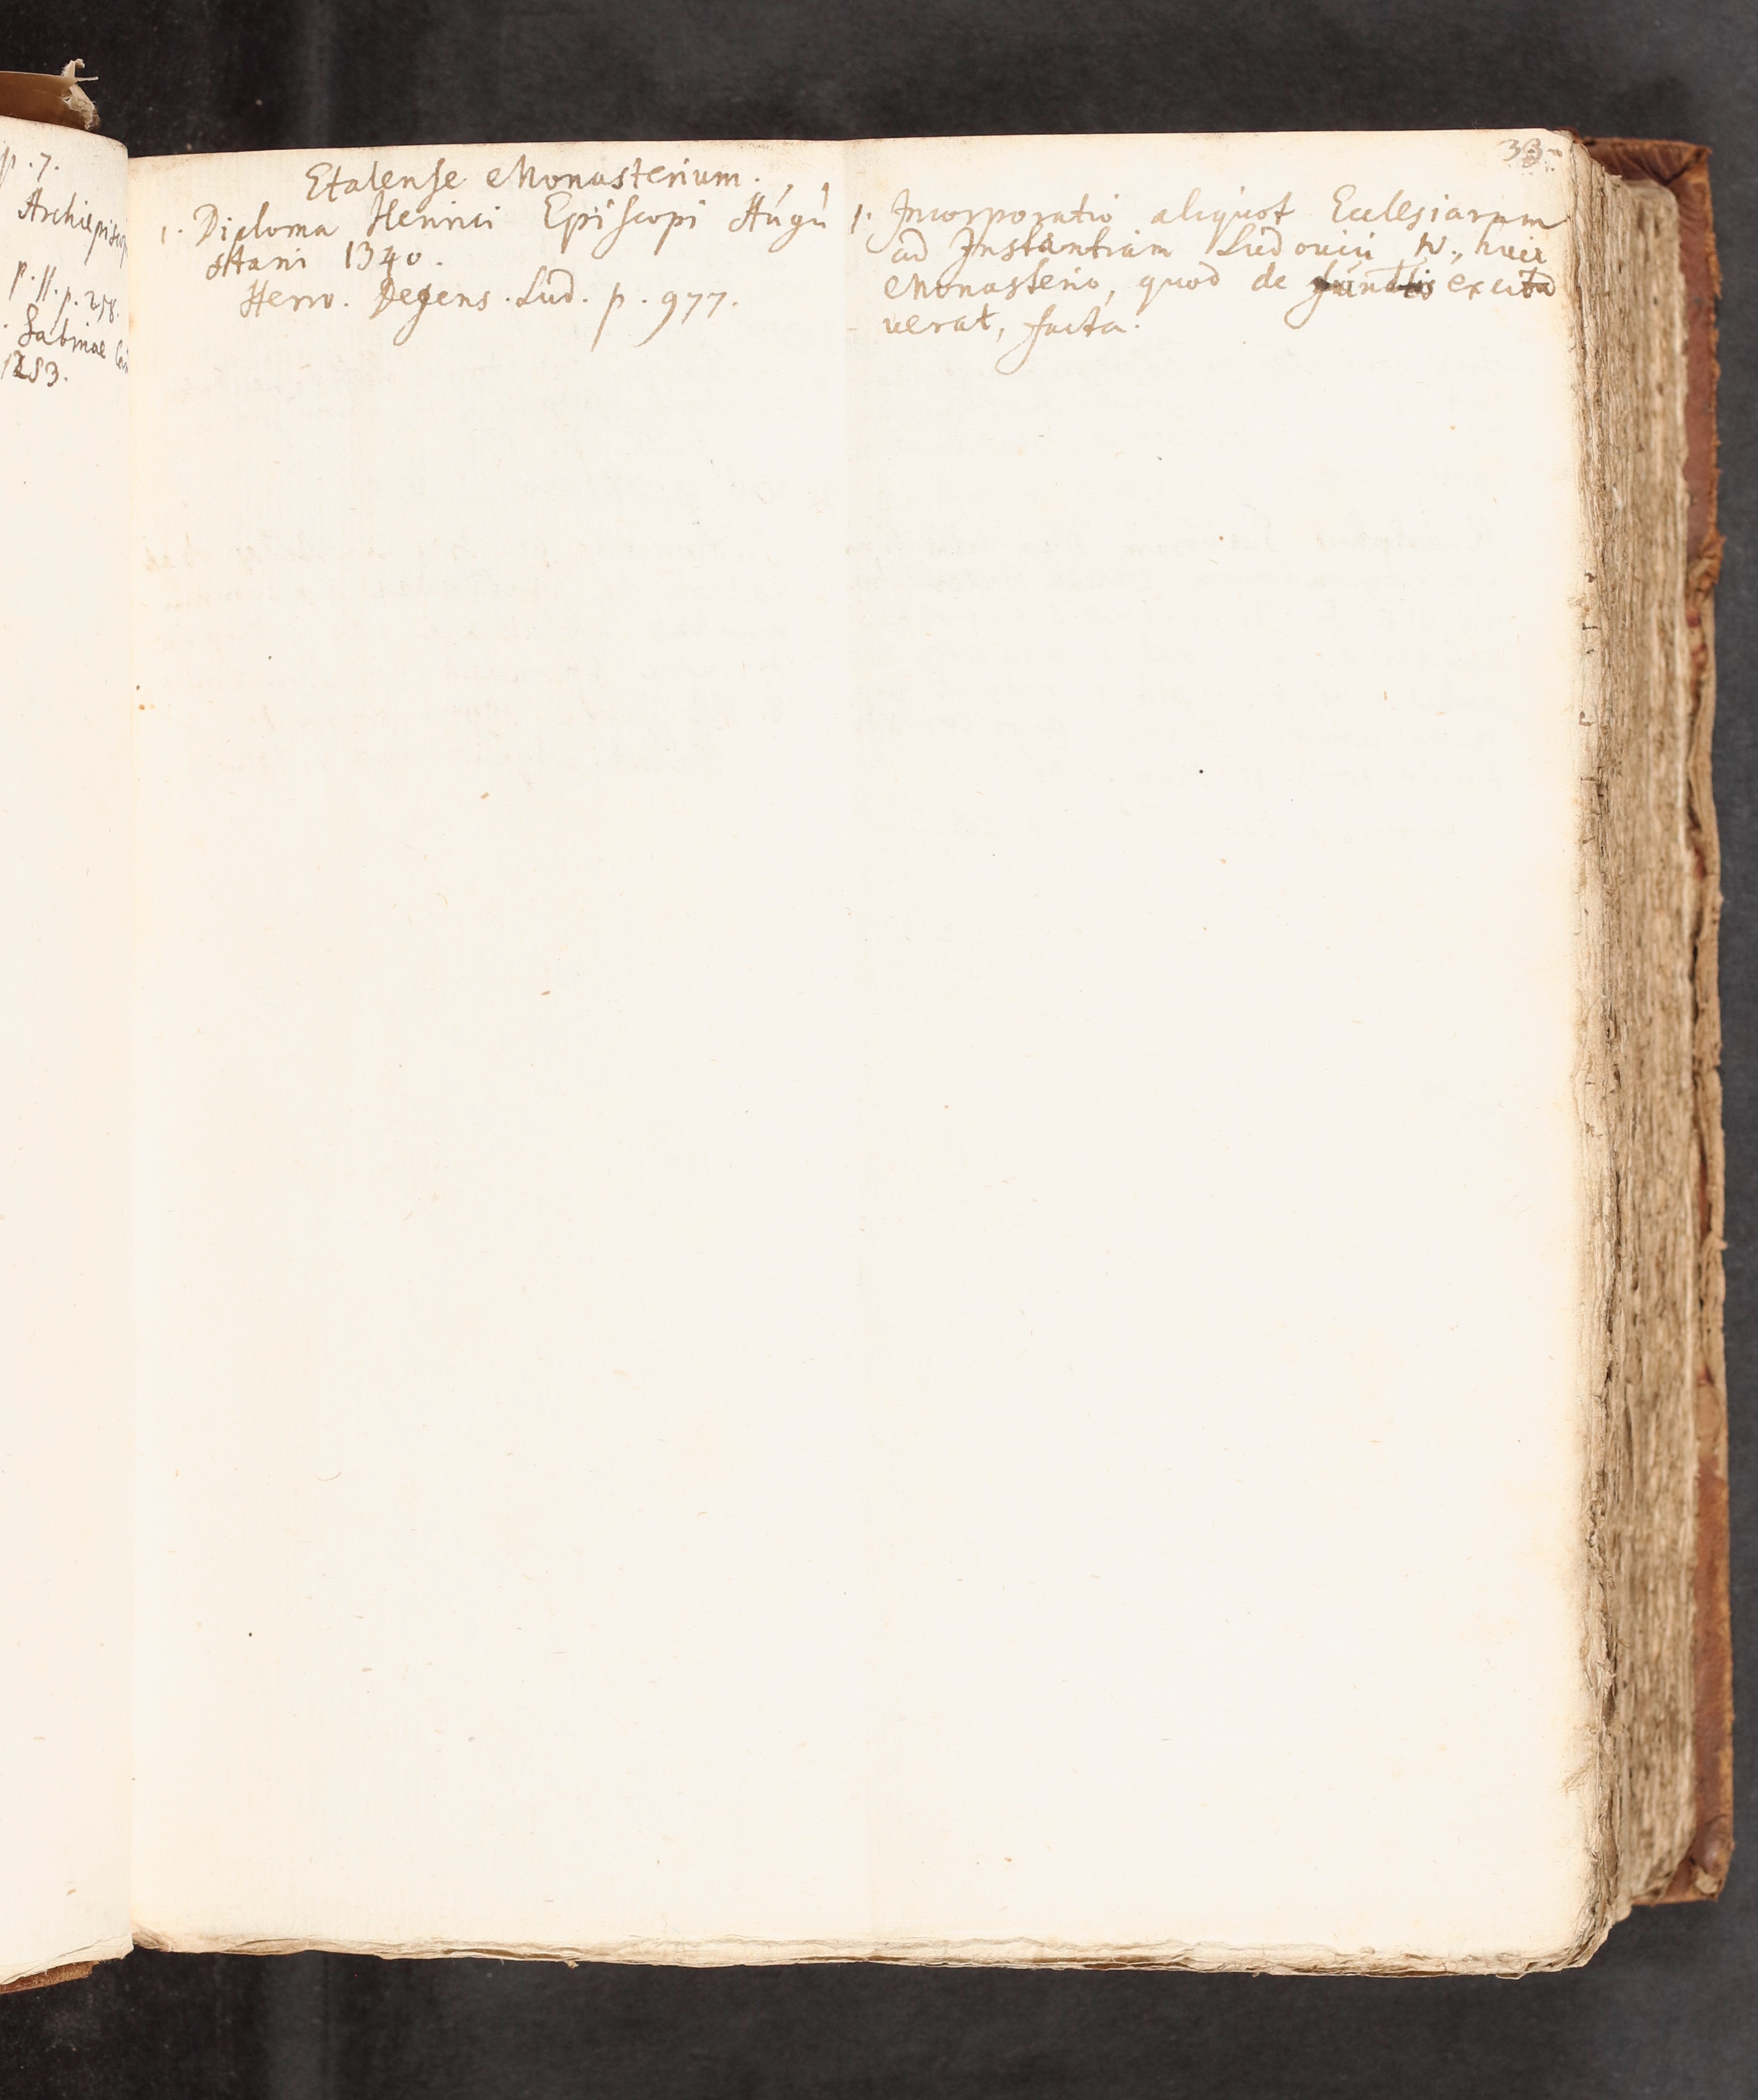 p. 7.
Archiepiscop
p. 11. p. 258.
Sabinae
1283.
33
Etalense Monasterium.
1. Diploma Henrici Episcopi Augu
stani 1340.
Herw. Defens. Lud. p. 977.
1. Incorporatio aliquot Ecclesiarum
ad Instantiam Ludovici IV., huic
Monasterio, quod de excita
verat, facta.